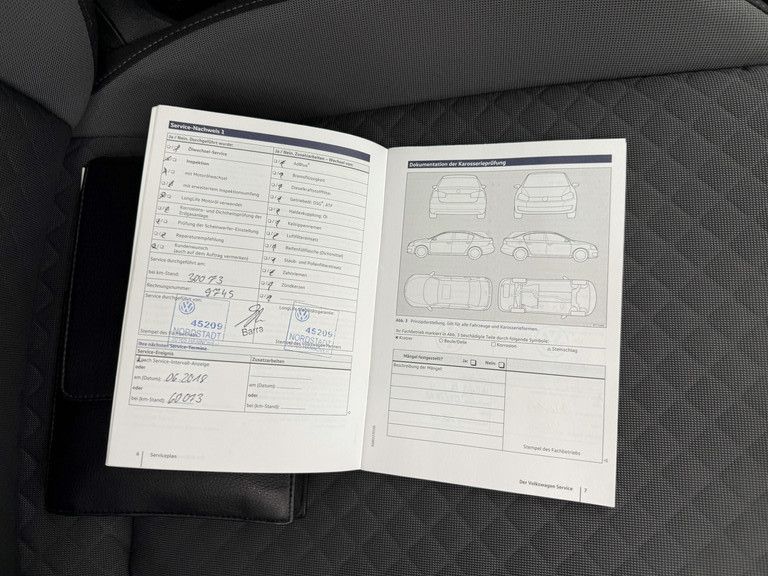 Service-Nachweis 1
Ja / Nein, Durchgeführt wurde:
Ölwechsel-Service
Inspektion
mit Motorölwechsel
mit erweitertem Inspektionsumfang
LongLife Motoröl verwendet
Korrosions- und Dichtheitsprüfung der
Erdgasanlage
Prüfung der Scheinwerfer-Einstellung
Reparaturempfehlung
Kundenwunsch
(auch auf dem Auftrag vermerken)
Service durchgeführt am:
bei km-Stand: 30073
Rechnungsnummer: 9745
Service durchgeführt von:
45209
NORDSTADT
Stempel des
Barra
Ja / Nein, Zusatzarbeiten – Wechsel von:
AdBlue®
Bremsflüssigkeit
Dieselkraftstofffilter
Getriebeöl: DSG®, ATF
Haldexkupplung, Öl
Keilrippenriemen
Luftfiltereinsatz
Reifenfüllflasche (Dichtmittel)
Staub- und Pollenfiltereinsatz
Zahnriemen
Zündkerzen
45209
NORDSTADT
Ihre nächsten Service-Termine
Service-Ereignis
Zusatzarbeiten
nach Service-Intervall-Anzeige
oder
am (Datum): 06.2018
oder
bei (km-Stand): 60073
am (Datum):
oder
bei (km-Stand):
6 Serviceplan
Dokumentation der Karosserieprüfung
Abb. 3 Prinzipdarstellung. Gilt für alle Fahrzeuge und Karosserieformen.
Ihr Fachbetrieb markiert in Abb. 3 beschädigte Teile durch folgende Symbole:
Kratzer
Beule/Delle
Korrosion
Steinschlag
Mängel festgestellt?
Ja:
Nein:
Beschreibung der Mängel:
Stempel des Fachbetriebs
Der Volkswagen Service 7